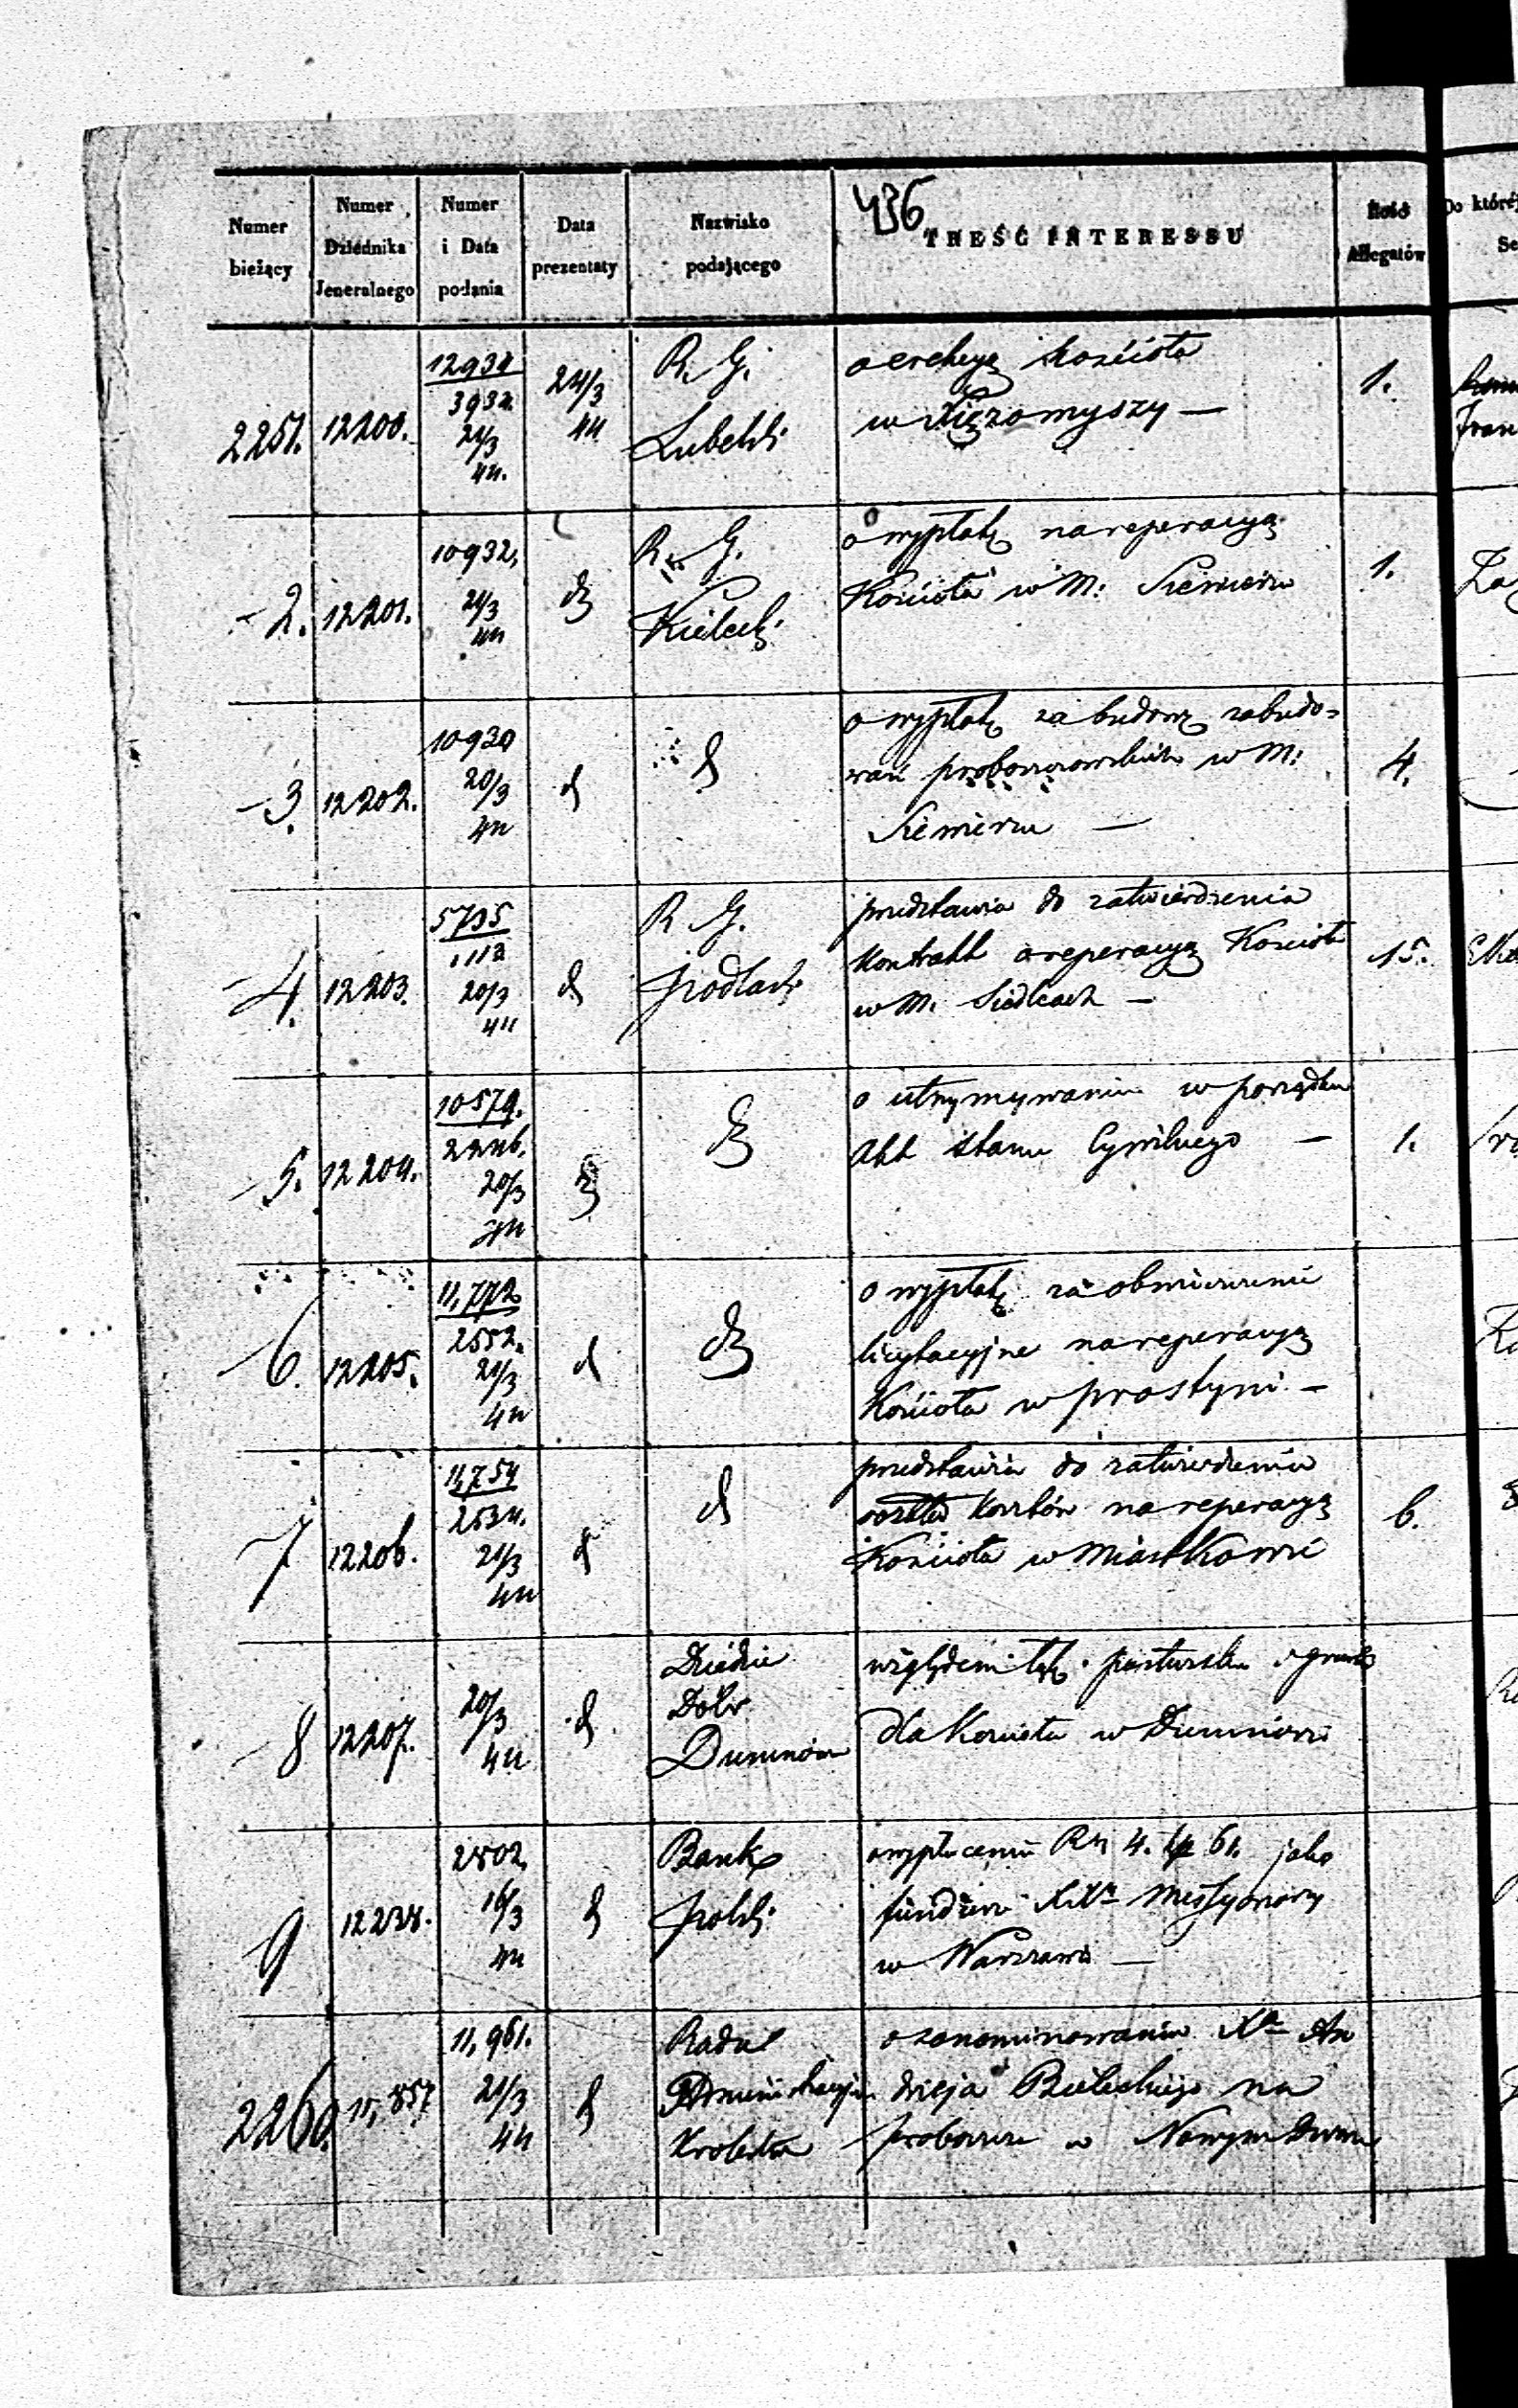 436
Numer bieżący
Numer Dziennika Jeneralnego
Numer i Data podania
Data prezentaty
Nazwisko podającego
TREŚĆ INTERESSU
Ilość Allegatów
Do któréj
Se
2251. 12200. 12932 3932. 21/3 44. 24/3 44 R. G. Lubelski
o erekcyą Kościoła
w Xiężomyszy — 1.
Fran
- 2. 12201. 10932, 21/3 44 R. G. Kielecki
o wypłatę na reperacyą
Kościoła w M: Siewierzu 1.
- 3. 12202. 10930 20/3 44
o wypłatę za budowę zabudo=
wań proboszczowskich w M:
Siewierzu — 4.
- 4. 12203. 5735 1112 20/3 44 R G. Podlaski
przedstawia do zatwierdzenia
Kontrakt o reperacyą Kościoła
w M. Siedlcach — 15.
- 5. 12204. 10579. 2246. 20/3 44
o utrzymywaniu w porządku
Akt Stanu Cywilnego — 1.
- 6. 12205. 11,772 2552. 21/3 44
o wypłatę za obwieszczenie
licytacyjne na reperacyą
Kościoła w Prostyni —
- 7 12206. 11,754 2534. 21/3 44
przedstawia do zatwierdzenia
Kosztów na reperacyą
Kościoła w Miastkowie 6.
- 8 12207. 20/3 44 Dziedzic Dóbr
względem łąk pastwiska i gruntu
dla Kościoła w
9 12238. 2502 16/3 44 Bank Polski
o wypłacenie Rs 4. k 61. jako
fundusz XXy Missyonarzy
w Warszawie —
2260. 15,857 11,961. 21/3 44 Rada Administracyjna Królestwa
o zanominowaniu Xa An
drzeja Bieleckiego na
proboszcza w Nowym Dworze